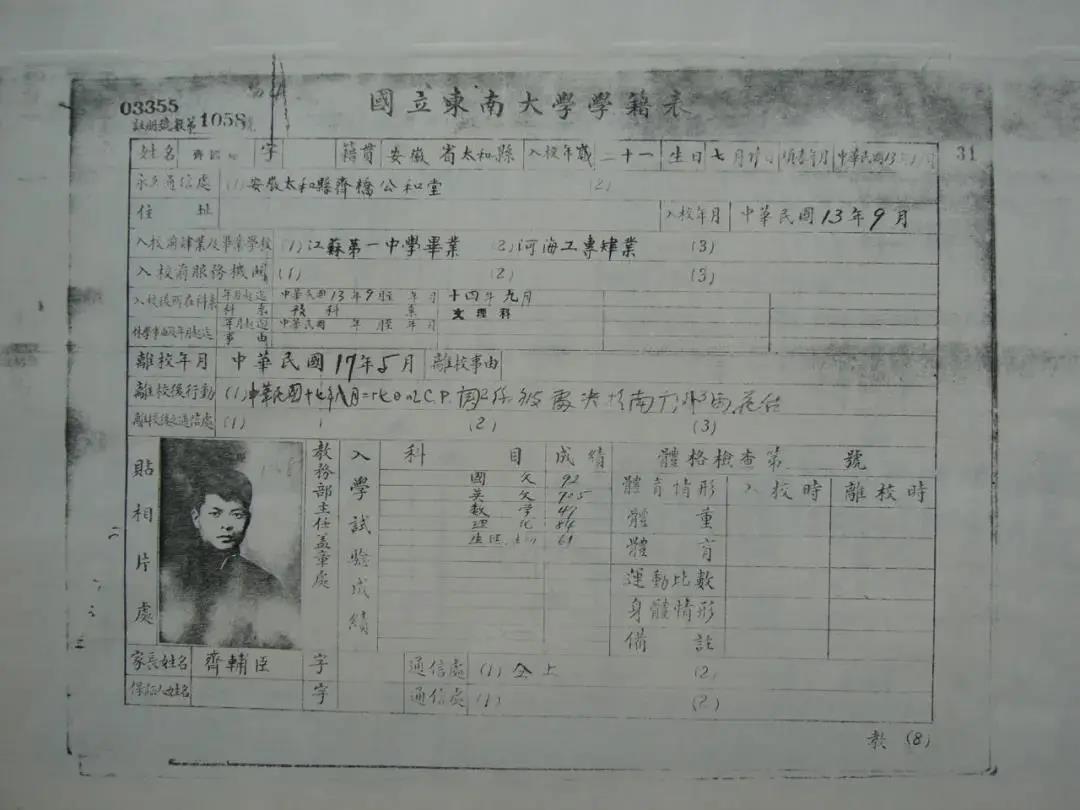 國立東南大學學籍表
03355
註冊號數第1058號
31
姓名 齊 字 籍貫 安徽省太和縣 入校年歲 二十一 生日 七月 日 填表年月 中華民國13年 月
永久通信處 (1) 安徽太和縣齊橋公和堂 (2)
住址 入校年月 中華民國13年9月
入校前肄業及畢業學校 (1) 江蘇第一中學畢業 (2) 河海工專肄業 (3)
入校前服務機關 (1) (2) (3)
入校後所在科系 年月起迄 中華民國13年9月至 年 月 十四年九月
科系 預科 系 文理科
休學事由及年月起迄 年月起迄 中華民國 年 月至 年 月
事由
離校年月 中華民國17年5月 離校事由
離校後行動 (1) 中華民國十七年八月 C.P. 被處決於南京 花台
離校後之通信處 (1) (2) (3)
貼相片處
教務部主任蓋章處
入學試驗成績
科目 成績 體格檢查第 號
國文 92 體育情形 入校時 離校時
英文
數學 49 體重
理化 84 體育
61
運動比數
身體情形
備註
家長姓名 齊輔臣 字 通信處 (1) 仝上 (2)
保證人姓名 字 通信處 (1) (2)
教 (8)